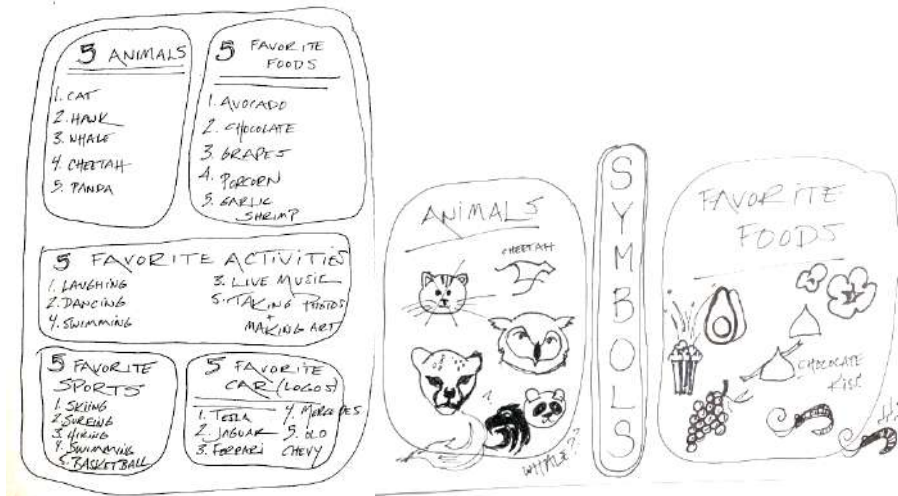 5 ANIMALS
1. CAT
2. HAWK
3. WHALE
4. CHEETAH
5. PANDA
5 FAVORITE
FOODS
1. AVOCADO
2. CHOCOLATE
3. GRAPES
4. POPCORN
5. GARLIC
SHRIMP
5 FAVORITE ACTIVITIES
1. LAUGHING
2. DANCING
4. SWIMMING
3. LIVE MUSIC
5. TAKING PHOTOS
+
MAKING ART
5 FAVORITE
SPORTS
1. SKIING
2. SURFING
3. HIKING
4. SWIMMING
5. BASKETBALL
5 FAVORITE
CAR (LOGOS)
1. TESLA
2. JAGUAR
3. FERRARI
4. MERCEDES
5. OLD
CHEVY
ANIMALS
CHEETAH
WHALE??
SYMBOLS
FAVORITE
FOODS
CHOCOLATE
KISS